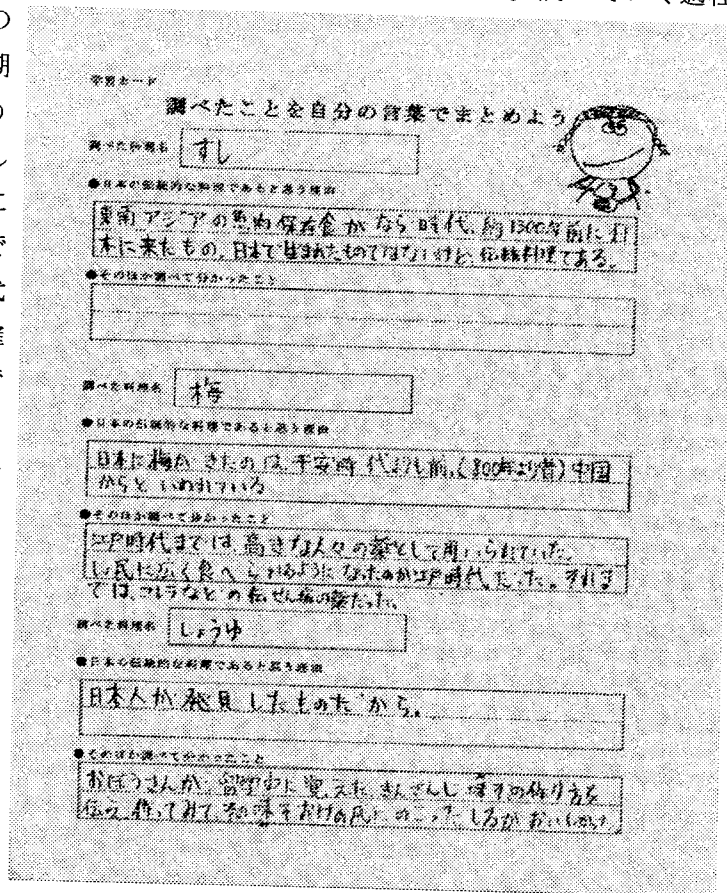 学習カード
調べたことを自分の言葉でまとめよう
調べた料理名 すし
●日本の伝統的な料理であると思う理由
東南アジアの魚肉保存食がなら時代、約1300年前に日
本に来たもの。日本で生まれたものではないけど、伝統料理である。
●そのほか調べて分かったこと
調べた料理名 梅
●日本の伝統的な料理であると思う理由
日本に梅がきたのは、平安時代よりも前、(800年より昔)中国
からといわれている
●そのほか調べて分かったこと
江戸時代までは、高きな人々の薬として用いられていた。
しょ民に広く食べられるようになったのが江戸時代だった。それま
では、コレラなどの伝せん病の薬だった。
調べた料理名 しょうゆ
●日本の伝統的な料理であると思う理由
日本人が発見したものだから。
●そのほか調べて分かったこと
おぼうさんが、留学中に覚えたきんざんじ味その作り方を
伝え、作ってみて、その味そおけの底にのこったしるがおいしかった